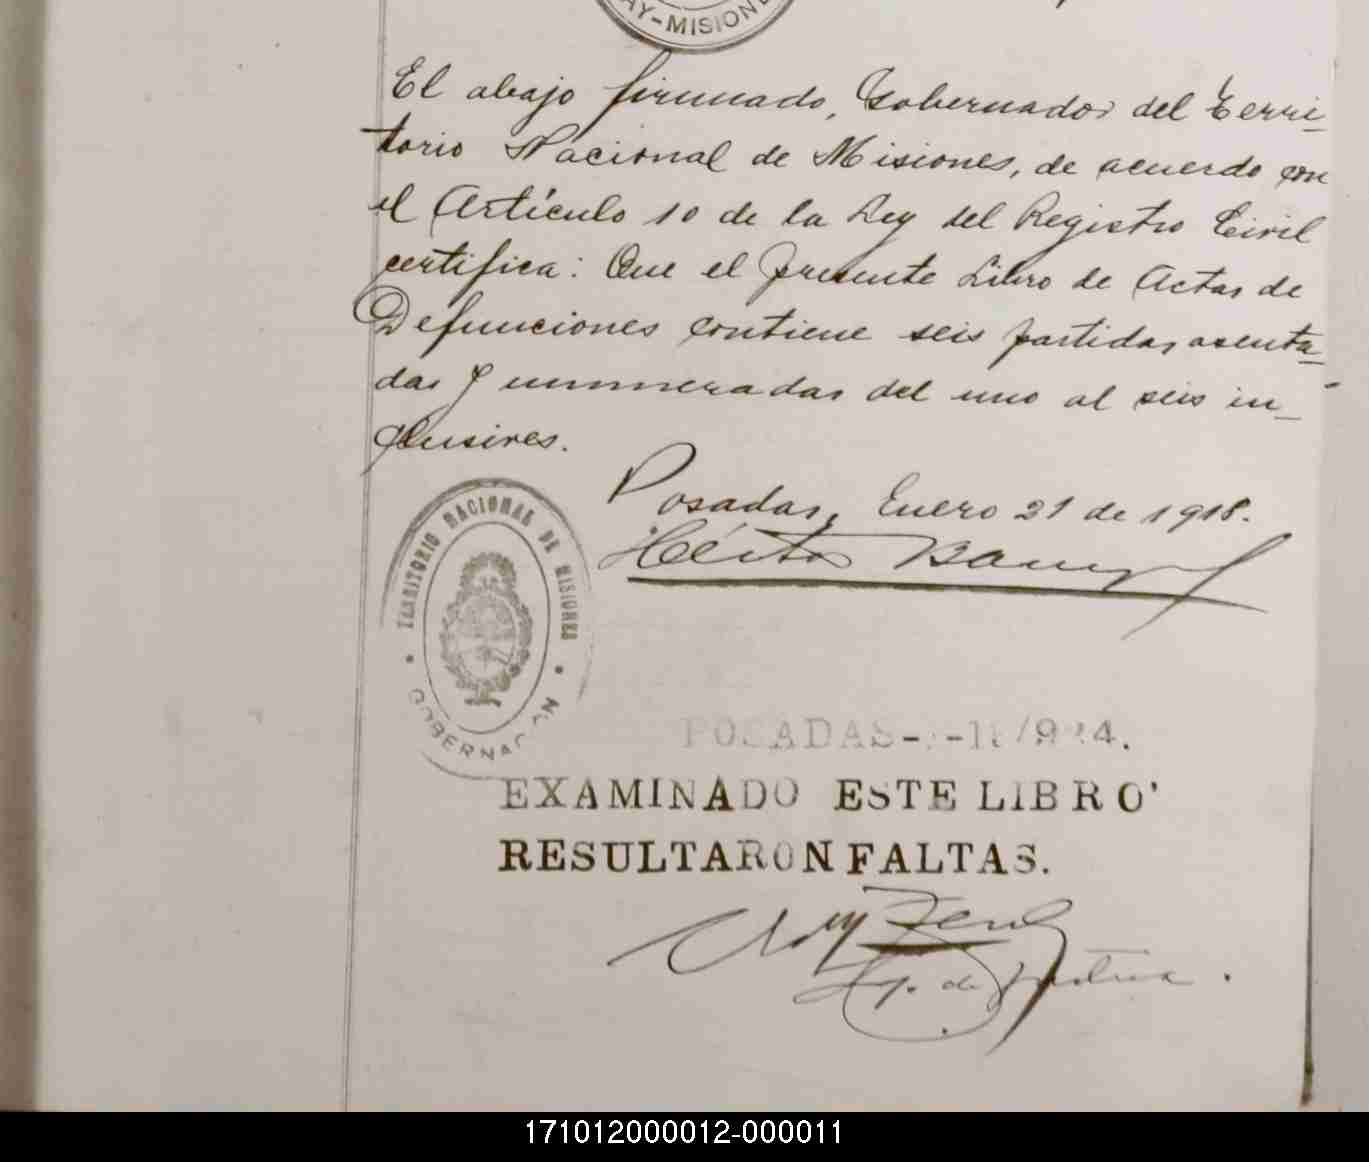 AY-MISIONE
El abajo firmado, Gobernador del Terri-
torio Nacional de Misiones, de acuerdo con
el Artículo 10 de la Ley del Registro Civil
certifica: Que el presente Libro de Actas de
Defunciones contiene seis partidas asenta-
das y numeradas del uno al seis in-
clusives.
Posadas, Enero 21 de 1918.
Héctor
TERRITORIO NACIONAL DE MISIONES
GOBERNACIÓN
POSADAS-
EXAMINADO ESTE LIBRO
RESULTARON FALTAS.
de
171012000012-000011